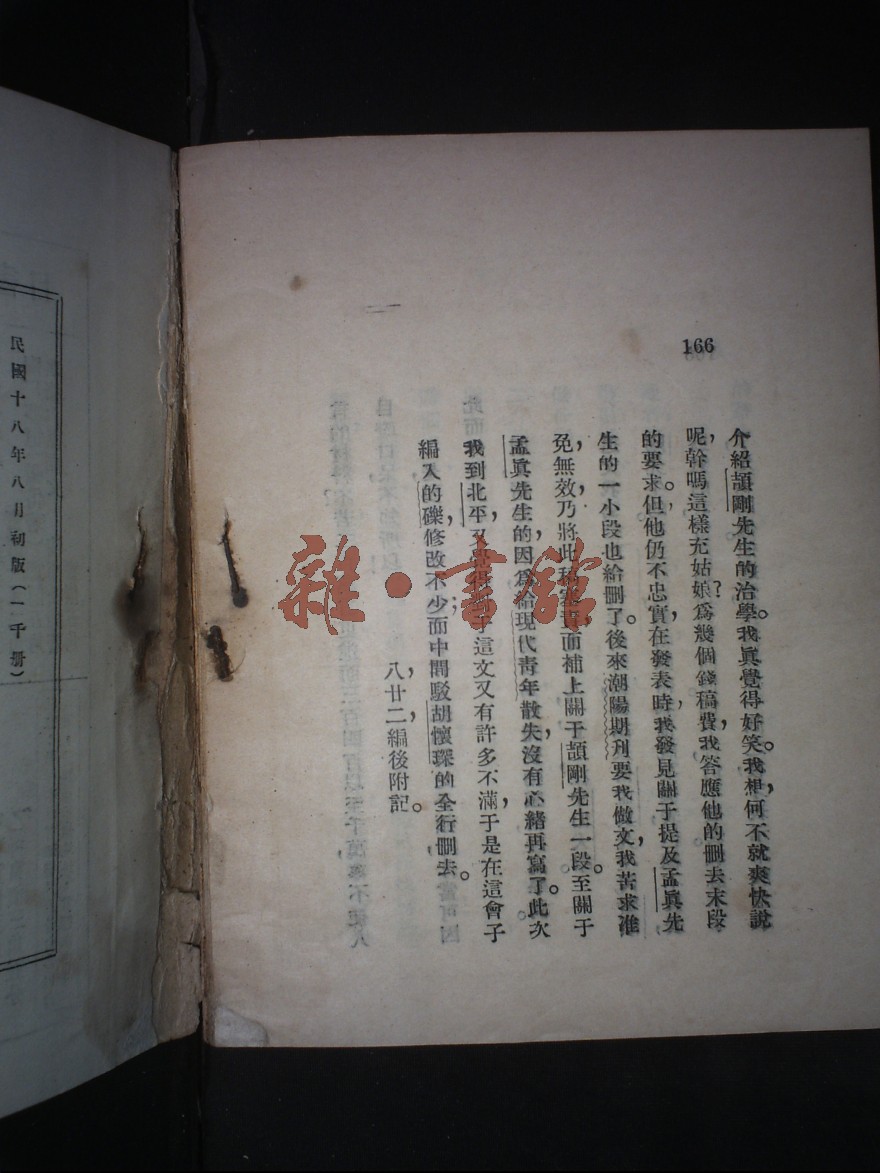 166
介紹頡剛先生的治學。我眞覺得好笑。我想,何不就爽快說
呢,幹嗎這樣充姑娘?爲幾個錢稿費,我答應他的刪去末段
的要求。但他仍不忠實在發表時,我發見關于提及孟眞先
生的一小段也給刪了。後來潮陽期刊要我做文,我苦求准
免,無效,乃將此稿塞責,而補上關于頡剛先生一段。至關于
孟眞先生的,因爲給現代靑年散失,沒有心緒再寫了。此次
我到北平,又覺得于這文又有許多不滿,于是在這會子
編入的,礫修改不少;而中間駁胡懷琛的全行刪去。
八,廿二,編後附記。
民國十八年八月初版(一千册)
雜·書館